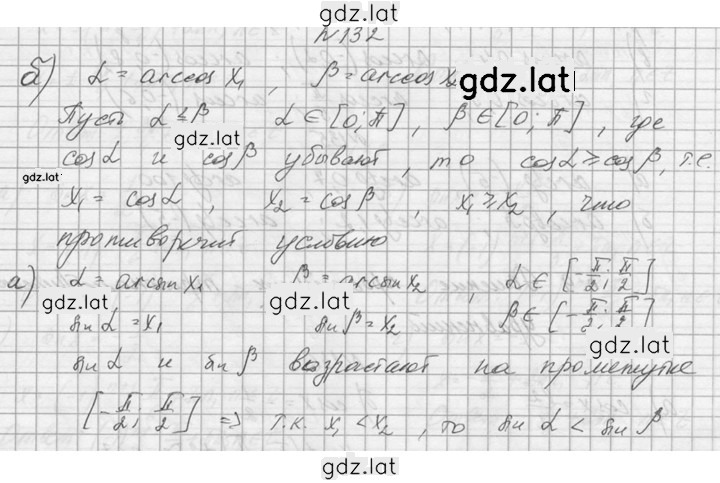 gdz.lat
№132
б) α = arccos x₁ , β = arccos x₂ gdz.lat
Пусть α ≤ β α ∈ [0; π] , β ∈ [0; π] , где
gdz.lat
cos α и cos β убывают, то cos α ≥ cos β, т.е.
gdz.lat
x₁ = cos α , x₂ = cos β , x₁ ≥ x₂ , что
противоречит условию
а) α = arcsin x₁ β = arcsin x₂ , α ∈ [-π/2; π/2]
gdz.lat gdz.lat
sin α = x₁ sin β = x₂ β ∈ [-π/2; π/2]
gdz.lat
sin α и sin β возрастают на промежутке
[-π/2; π/2] => т.к. x₁ < x₂ , то sin α < sin β
gdz.lat